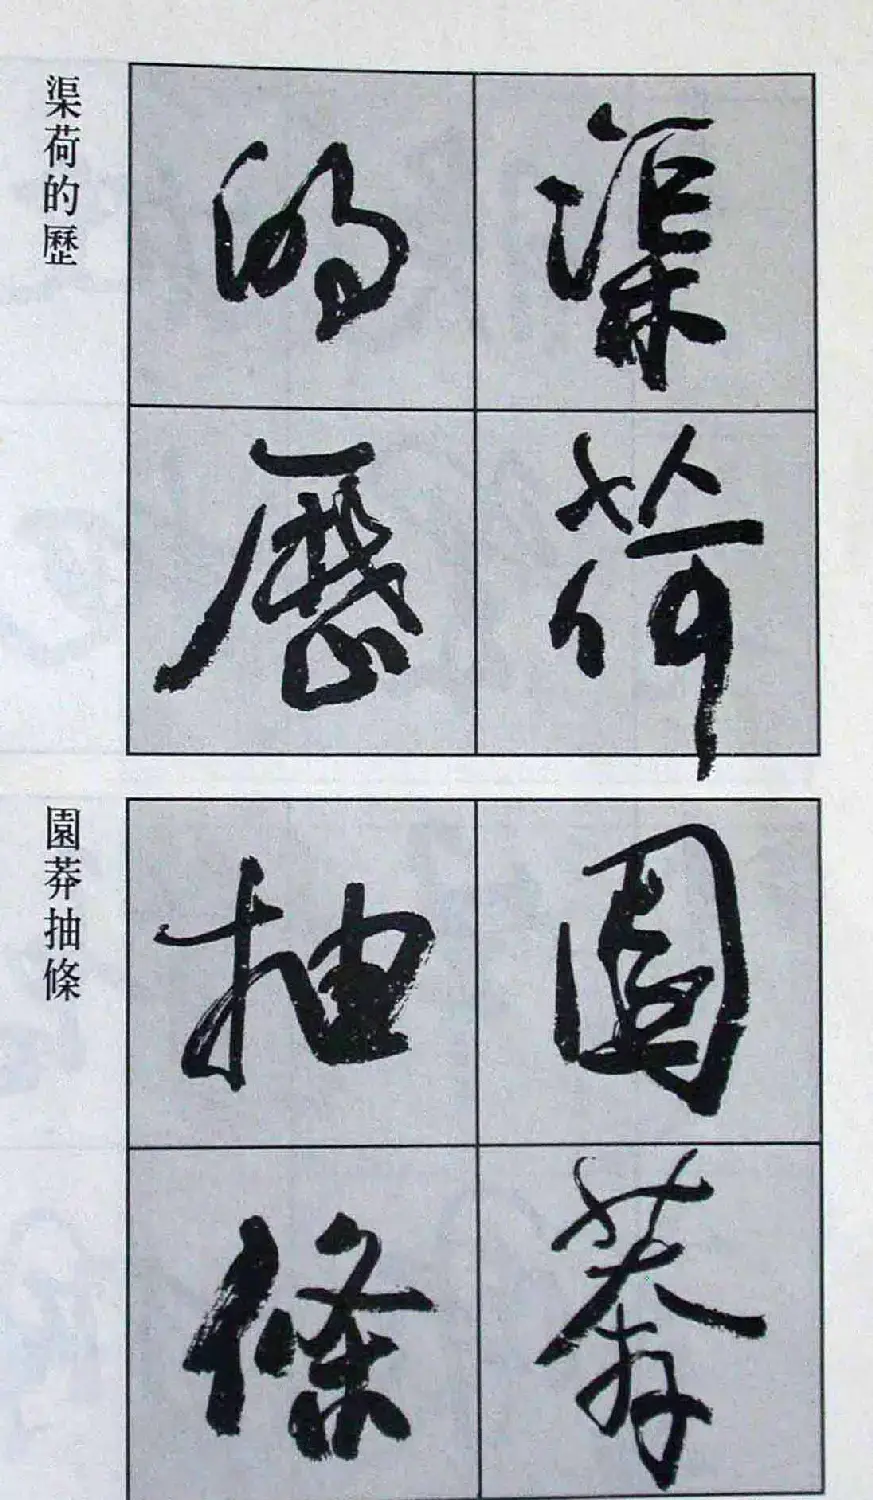 渠荷
的歷
渠荷的歷
園莽
抽條
園莽抽條